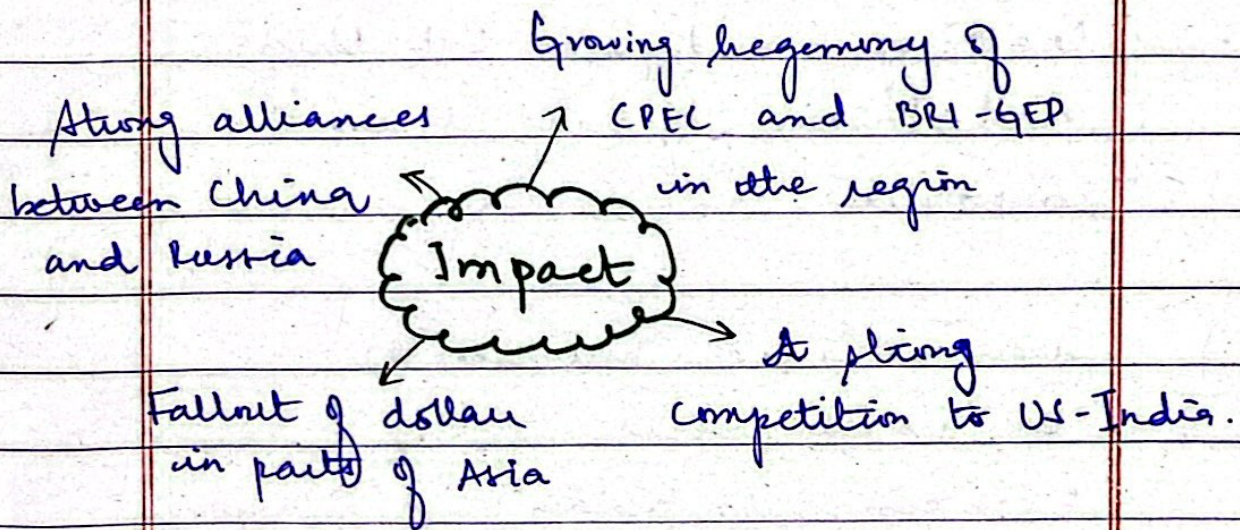 Growing hegemony of
CPEC and BRI-GEP
in the region
Strong alliances
between China
and Russia
Impact
A strong
competition to US-India.
Fallout of dollar
in parts of Asia